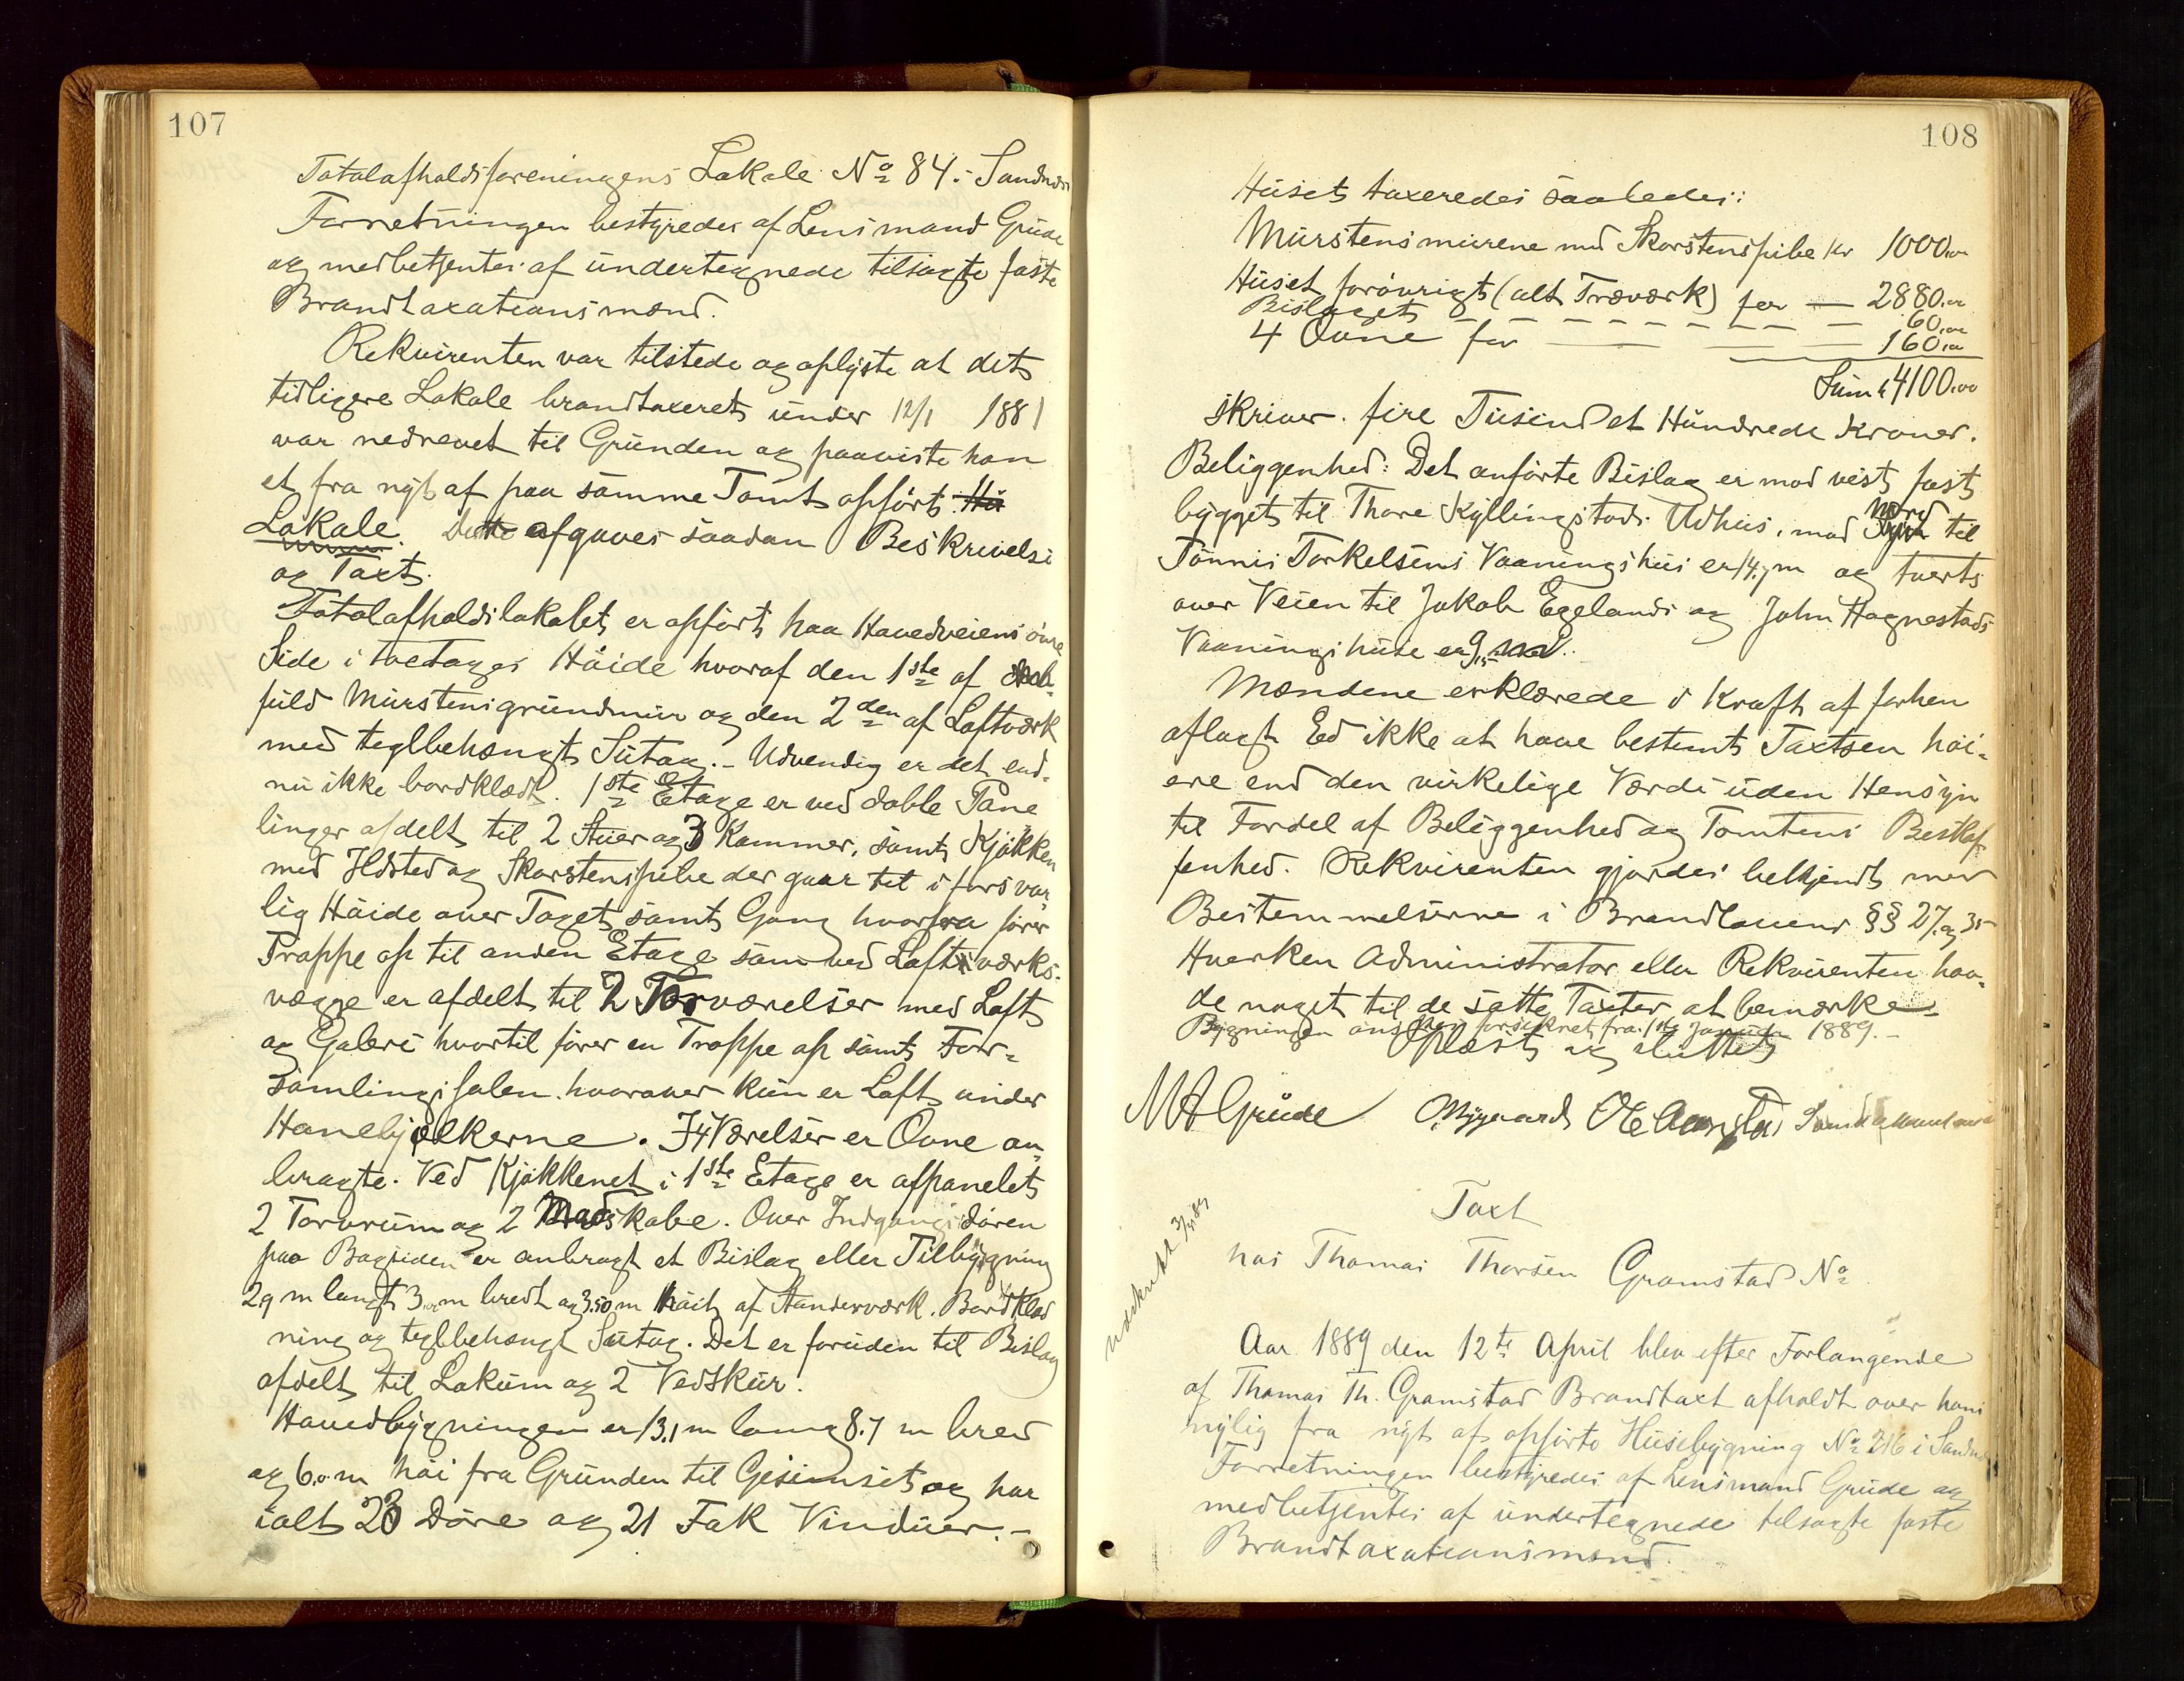 107
Totalafholdsforeningens Lokale No 84.- Sandnæs
Forretningen bestyredes af Lensmand Grude
og medbetjentes af undertegnede tilsagte faste
Brandtaxationsmænd.
Rekvirenten var tilstede og oplyste at det
tidligere Lokale brandtaxeret under 12/1 1881
var nedrevet til Grunden og paaviste han
et fra nyt af paa samme Tomt opført Hu
Lokale. Dette afgaves saadan Beskrivelse
og Taxt.
Totalafholdslokalet er opført paa Hovedveiens øvre
Side i toetages Høide hvoraf den 1ste af
fuld Murstensgrundmur og den 2den af Laftværk
med teglbehængt Sutag.- Udvendig er det end-
nu ikke bordklædt. 1ste Etage er ved doble Pane
linger afdelt til 2 Stuer og 3 Kammer, samt Kjøkken
med Ildsted og Skorstenspibe der gaar til i forsvar
lig Høide over Taget samt Gang hvorfra fører
Trappe op til anden Etage som ved Laftværks-
vægge er afdelt til 2 Forværelser med Loft
og Galeri hvortil fører en Trappe op samt For-
samlingssalen hvorover kun er Loft under
Hanebjelkerne. I 4 Værelser er Ovne an-
bragte. Ved Kjøkkenet i 1ste Etage er afpanelet
2 Torvrum og 2 Madskabe. Over Indgangsdøren
paa Bagsiden er anbragt et Bislag eller Tilbygning
29 m langt 3,00 m bredt og 3.50 m høit af Standerværk. Bordklæd
ning og teglbehængt Sutag. Det er foruden til Bislag
afdelt til Lokum og 2 Vedskur.
Hovedbygningen er 13.1 m lang 8.7 m bred
og 6.0 m høi fra Grunden til Gesimset og har
ialt 23 Døre og 21 Fak Vinduer.-
108
Huset taxeredes saaledes:
Murstensmurene med Skorstenspibe Kr 1000.00
Huset forøvrigt (alt Træværk) for — 2880.00
Bislaget — 60.00
4 Ovne for — 160.00
Sum Kr 4100.00
skriver fire Tusind et Hundrede Kroner.
Beliggenhed: Det anførte Bislag er mod vest fast
bygget til Thore Kyllingstads Udhus, mod nord til
Tønnes Torkelsens Vaaningshus er 14.7 m og tverts
over Veien til Jakob Egelands og John Hagnestads
Vaaningshuse er 9,5
Mændene erklærede i Kraft af forhen
aflagt Ed ikke at have bestemt Taxtsen høi-
ere end den virkelige Værdi uden Hensyn
til Fordel af Beliggenhed og Tomtens Beskaf-
fenhed. Rekvirenten gjordes bekjendt med
Bestemmelserne i Brandlovens §§ 27. og 35
Hverken Administrator eller Rekvirenten hav-
de noget til de satte Taxter at bemærke.
Bygningen forsikret fra 1ste Januar 1889.-
Oplæst og sluttet
Grude O. Nygaard
Taxt
hos Thomas Thorsen Gramstad No
Udskrevet
Aar 1889 den 12te April blev efter Forlangende
af Thomas Th. Gramstad Brandtaxt afholdt over hans
nylig fra nyt af opførte Husebygning No 216 i Sandnæs
Forretningen bestyredes af Lensmand Grude og
medbetjentes af undertegnede tilsagte faste
Brandtaxationsmænd.